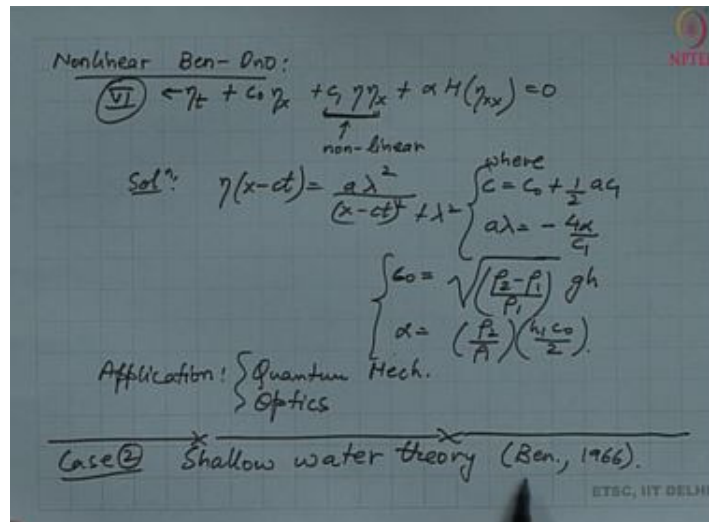 NPTEL
Nonlinear Ben-Ono:
VI ← η_t + c_0 η_x + c_1 η η_x + α H(η_xx) = 0
↑
non-linear
Solⁿ: η(x-ct) = aλ² / ((x-ct)² + λ²) { where c = c_0 + 1/2 a c_1
aλ = - 4α/c_1
{ c_0 = √((ρ_2-ρ_1)/ρ_1) gh
α = (ρ_2/ρ_1)(h_1 c_0/2).
Application: { Quantum Mech.
Optics
Case ② Shallow water theory (Ben., 1966).
ETSC, IIT DELHI